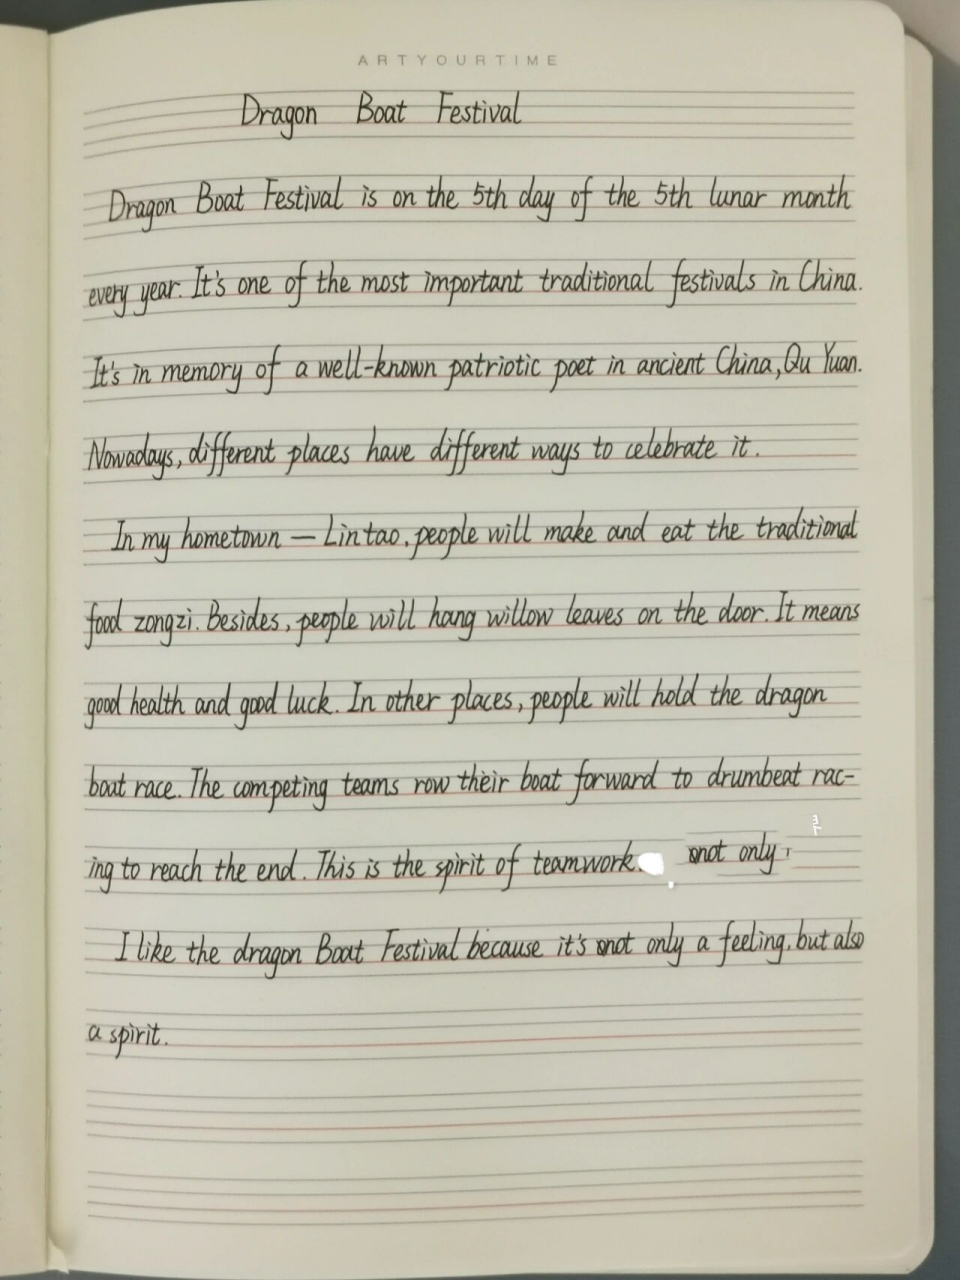 ARTYOURTIME
Dragon Boat Festival
Dragon Boat Festival is on the 5th day of the 5th lunar month
every year. It's one of the most important traditional festivals in China.
It's in memory of a well-known patriotic poet in ancient China, Qu Yuan.
Nowadays, different places have different ways to celebrate it.
In my hometown — Lintao, people will make and eat the traditional
food zongzi. Besides, people will hang willow leaves on the door. It means
good health and good luck. In other places, people will hold the dragon
boat race. The competing teams row their boat forward to drumbeat rac-
ing to reach the end. This is the spirit of teamwork. not only
I like the dragon Boat Festival because it's not only a feeling, but also
a spirit.